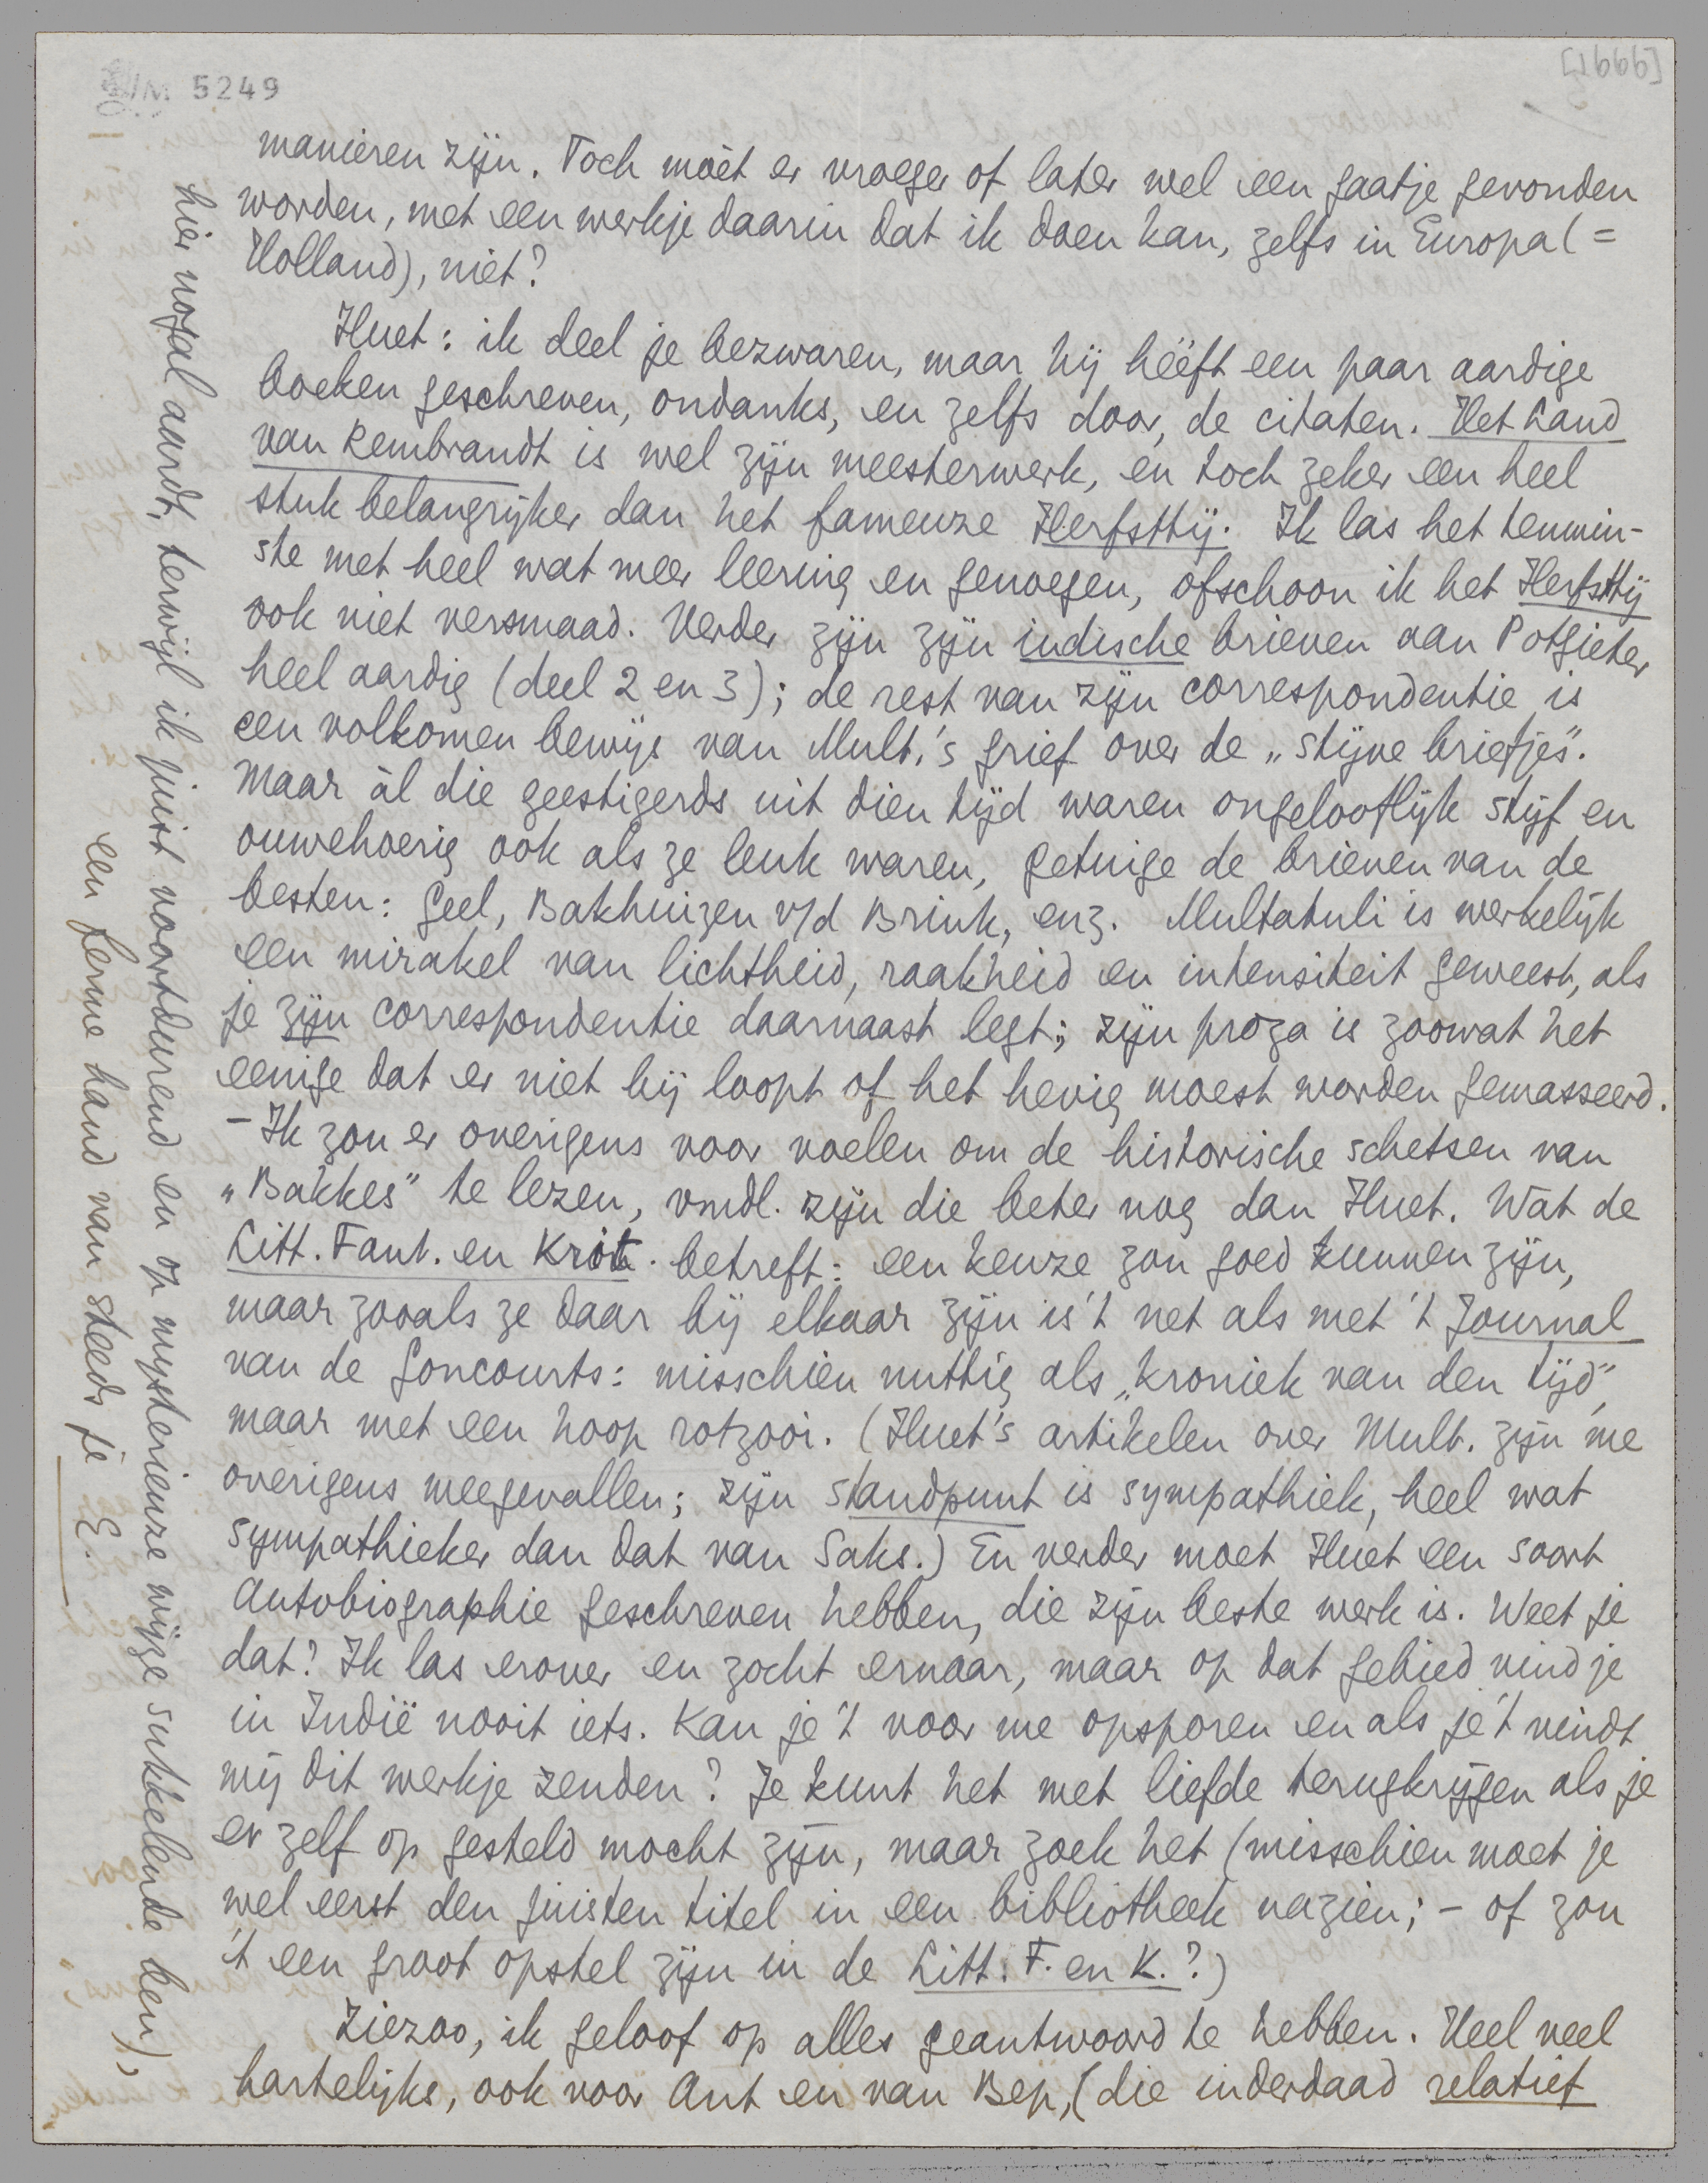 LM 5249
[1666]
manieren zijn. Toch móét er vroeger of later wel een gaatje gevonden
worden, met een werkje daarin dat ik doen kan, zelfs in Europa (=
Holland), niet?
Huet: ik deel je bezwaren, maar hij hééft een paar aardige
boeken geschreven, ondanks, en zelfs door, de citaten. Het Land
van Rembrandt is wel zijn meesterwerk, en toch zeker een heel
stuk belangrijker dan het fameuze Herfsttij. Ik las het tenmin-
ste met heel wat meer leering en genoegen, ofschoon ik het Herfsttij
ook niet versmaad. Verder zijn zijn indische brieven aan Potgieter
heel aardig (deel 2 en 3); de rest van zijn correspondentie is
een volkomen bewijs van Mult.'s grief over de „stijve briefjes".
Maar àl die geestigerds uit dien tijd waren ongelooflijk stijf en
ouwehoerig ook als ze leuk waren, getuige de brieven van de
besten: Geel, Bakhuizen v/d Brink, enz. Multatuli is werkelijk
een mirakel van lichtheid, raakheid en intensiteit geweest, als
je zijn correspondentie daarnaast legt; zijn proza is zoowat het
eenige dat er niet bij loopt of het hevig moest worden gemasseerd.
- Ik zou er overigens voor voelen om de historische schetsen van
„Bakkes" te lezen, vmdl. zijn die beter nog dan Huet. Wat de
Litt. Fant. en Krit. betreft: een keuze zou goed kunnen zijn,
maar zooals ze daar bij elkaar zijn is 't net als met 't Journal
van de Goncourts: misschien nuttig als „kroniek van den tijd",
maar met een hoop rotzooi. (Huet's artikelen over Mult. zijn me
overigens meegevallen; zijn standpunt is sympathiek, heel wat
sympathieker dan dat van Saks.) En verder moet Huet een soort
autobiographie geschreven hebben, die zijn beste werk is. Weet je
dat? Ik las erover en zocht ernaar, maar op dat gebied vind je
in Indië nooit iets. Kan je 't voor me opsporen en als je 't vindt
mij dit werkje zenden? Je kunt het met liefde terugkrijgen als je
er zelf op gesteld mocht zijn, maar zoek het (misschien moet je
wel eerst den juisten titel in een bibliotheek nazien; - of zou
't een groot opstel zijn in de Litt. F. en K.?)
Ziezoo, ik geloof op alles geantwoord te hebben. Heel veel
hartelijks, ook voor Ant en van Bep, (die inderdaad relatief
hier nogal aardt, terwijl ik juist voortdurend en op mysterieuze wijze sukkelende ben),
een ferme hand van steeds je E.